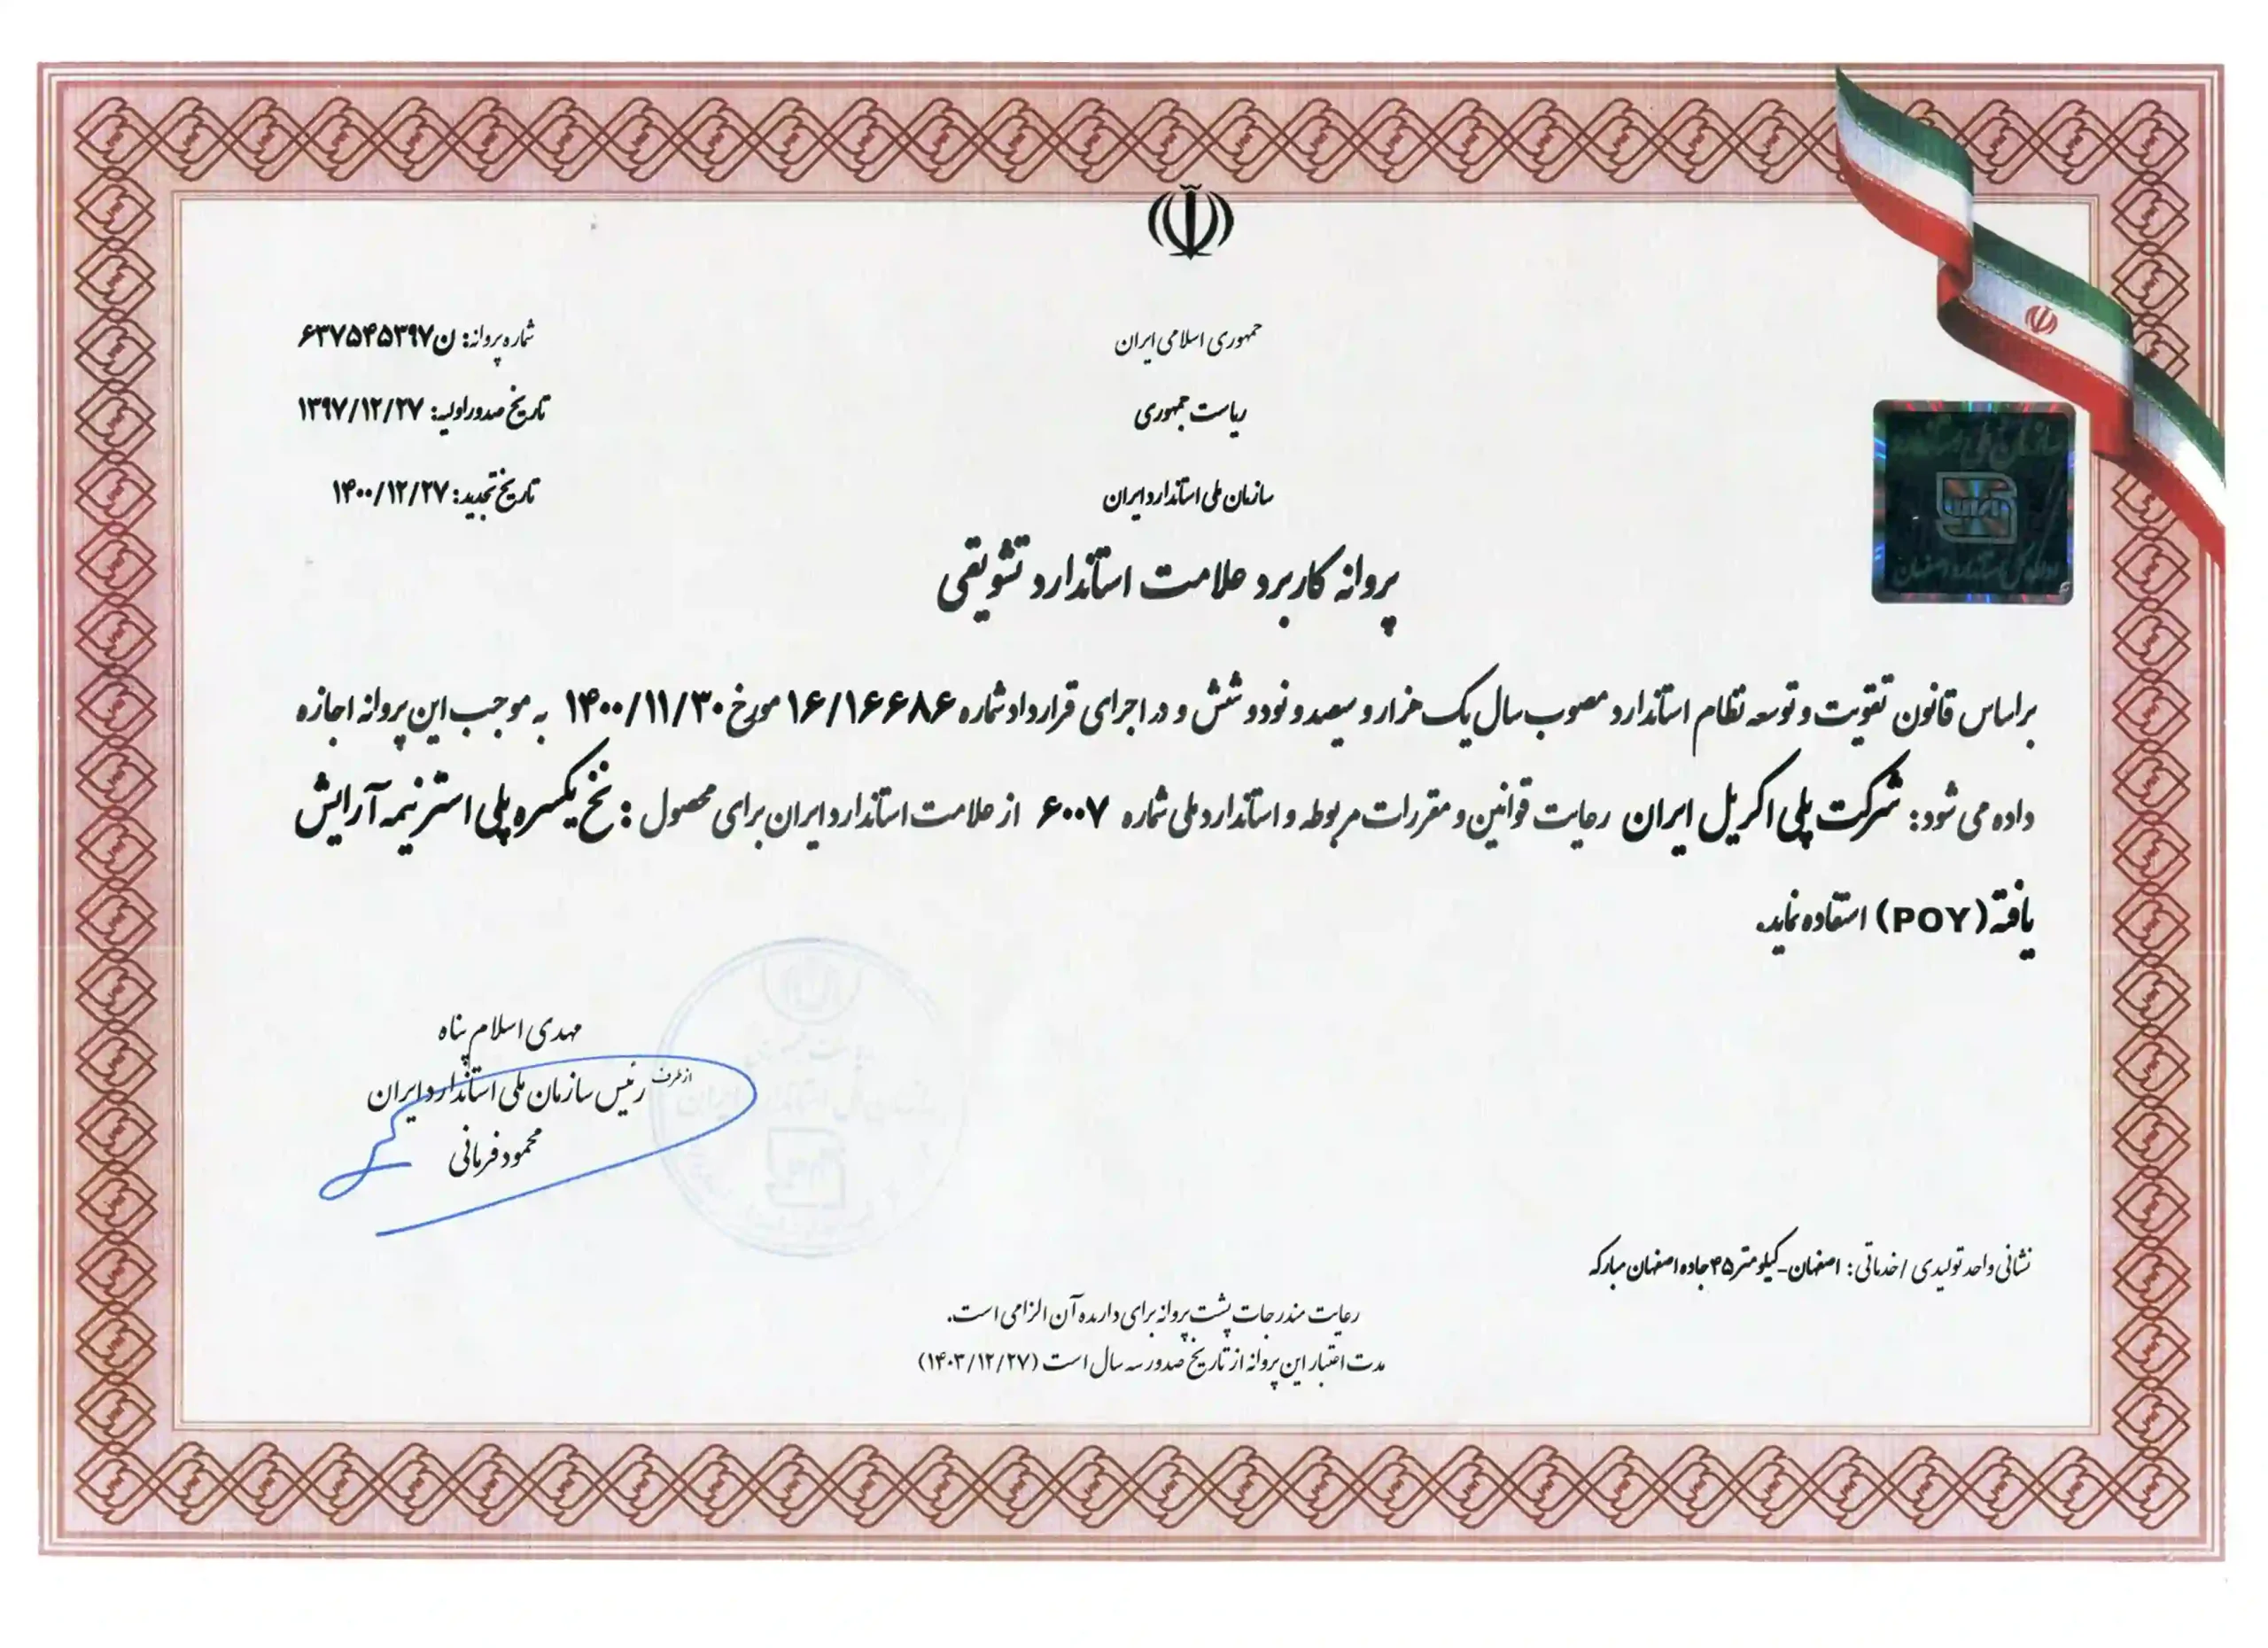 جمهوری اسلامی ایران
ریاست جمهوری
سازمان ملی استاندارد ایران
شماره پروانه: ن۶۳۷۵۴۵۳۹۷
تاریخ صدور اولیه: ۱۳۹۷/۱۲/۲۷
تاریخ تجدید: ۱۴۰۰/۱۲/۲۷
سازمان ملی استاندارد
اداره کل استاندارد اصفهان
پروانه کاربرد علامت استاندارد تشویقی
براساس قانون تقویت و توسعه نظام استاندارد مصوب سال یک هزار و سیصد و نود و شش و در اجرای قرارداد شماره ۱۶/۱۶۶۸۶ مورخ ۱۴۰۰/۱۱/۳۰ به موجب این پروانه اجازه
داده می شود: شرکت پلی اکریل ایران رعایت قوانین و مقررات مربوطه و استاندارد ملی شماره ۶۰۰۷ از علامت استاندارد ایران برای محصول : نخ یکسره پلی استر نیمه آرایش
یافته (POY) استفاده نماید.
مهدی اسلام پناه
از طرف رئیس سازمان ملی استاندارد ایران
محمود فرمانی
نشانی واحد تولیدی / خدماتی: اصفهان-کیلومتر ۴۵ جاده اصفهان مبارکه
رعایت مندرجات پشت پروانه برای دارنده آن الزامی است.
مدت اعتبار این پروانه از تاریخ صدور سه سال است (۱۴۰۳/۱۲/۲۷)